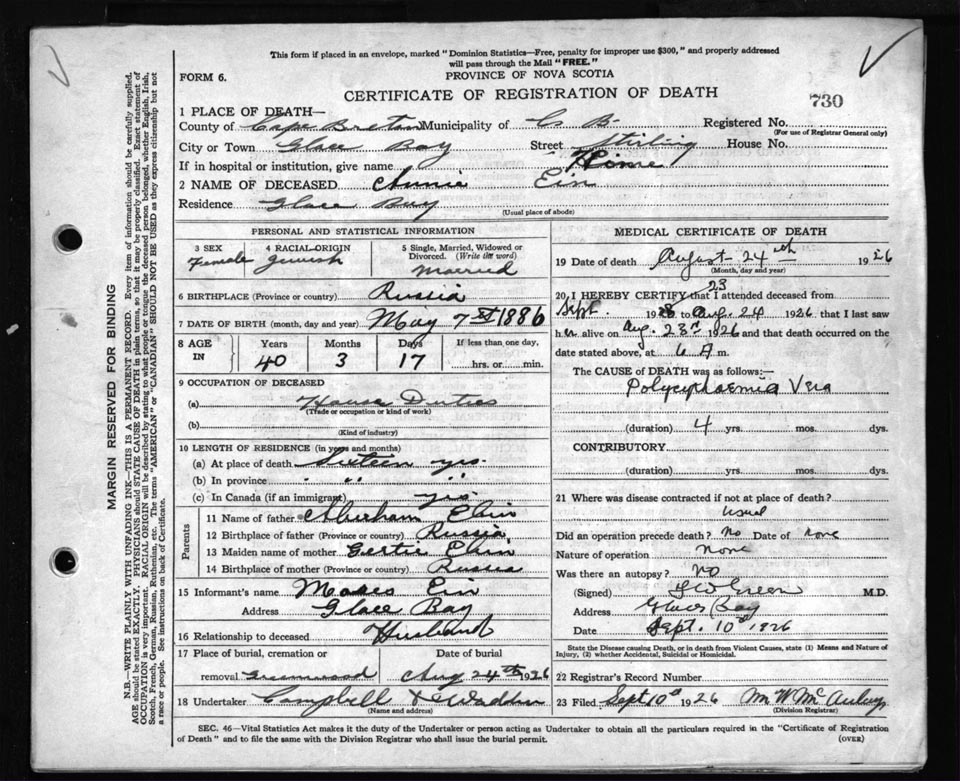 This form if placed in an envelope, marked "Dominion Statistics—Free, penalty for improper use $300," and properly addressed
will pass through the Mail "FREE."
FORM 6.
PROVINCE OF NOVA SCOTIA
CERTIFICATE OF REGISTRATION OF DEATH
730
1 PLACE OF DEATH—
County of Cape Breton Municipality of C. B. Registered No.
(For use of Registrar General only)
City or Town Glace Bay Street Stirling House No.
If in hospital or institution, give name Home
2 NAME OF DECEASED Annie Ein
Residence Glace Bay
(Usual place of abode)
PERSONAL AND STATISTICAL INFORMATION
3 SEX Female
4 RACIAL ORIGIN Jewish
5 Single, Married, Widowed or Divorced. (Write the word) Married
6 BIRTHPLACE (Province or country) Russia
7 DATE OF BIRTH (month, day and year) May 7th 1886
8 AGE IN Years Months Days If less than one day,
40 3 17 hrs. or min.
9 OCCUPATION OF DECEASED
(a) House Duties
(Trade or occupation or kind of work)
(b)
(Kind of industry)
10 LENGTH OF RESIDENCE (in years and months)
(a) At place of death Sixteen yrs.
(b) In province " " "
(c) In Canada (if an immigrant) yrs
Parents
11 Name of father Abraham
12 Birthplace of father (Province or country) Russia
13 Maiden name of mother Gertie
14 Birthplace of mother (Province or country) Russia
15 Informant's name Moses Ein
Address Glace Bay
16 Relationship to deceased Husband
17 Place of burial, cremation or Date of burial
removal Greenwood Aug 24th 1926
18 Undertaker Campbell &
(Name and address)
MEDICAL CERTIFICATE OF DEATH
19 Date of death August 24th 1926
(Month, day and year)
20 I HEREBY CERTIFY that I attended deceased from
Sept. 1923 to Aug. 24 1926 that I last saw
h alive on Aug. 23rd 1926 and that death occurred on the
date stated above, at 6 A m.
The CAUSE of DEATH was as follows:—
Polycythaemia Vera
(duration) 4 yrs. mos. dys.
CONTRIBUTORY
(duration) yrs. mos. dys.
21 Where was disease contracted if not at place of death?
usual
Did an operation precede death? No Date of None
Nature of operation None
Was there an autopsy? NO
(Signed) Green M.D.
Address Glace Bay
Date Sept. 10th 1926
State the Disease causing Death, or in death from Violent Causes, state (1) Means and Nature of
Injury, (2) whether Accidental, Suicidal or Homicidal.
22 Registrar's Record Number
23 Filed Sept 10th 1926
(Division Registrar)
SEC. 46—Vital Statistics Act makes it the duty of the Undertaker or person acting as Undertaker to obtain all the particulars required in the "Certificate of Registration
of Death" and to file the same with the Division Registrar who shall issue the burial permit. (OVER)
MARGIN RESERVED FOR BINDING
N.B.—WRITE PLAINLY WITH UNFADING INK—THIS IS A PERMANENT RECORD. Every item of information should be carefully supplied.
AGE should be stated EXACTLY. PHYSICIANS should STATE CAUSE OF DEATH in plain terms, so that it may be properly classified. Exact statement of
OCCUPATION is very important. RACIAL ORIGIN will be described by stating to what people or tongue the deceased person belonged, whether English, Irish,
Scotch, French, German, Russian, Ruthenian, etc. The terms "AMERICAN" or "CANADIAN" SHOULD NOT BE USED as they express citizenship but not
a race or people. See instructions on back of Certificate.